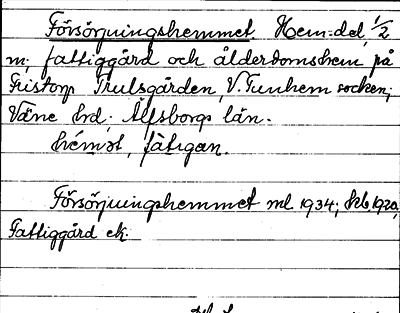 Försörjningshemmet. Hem.del 1/2
m; fattiggård och ålderdomshem på
Fristorp Trulsgården, V. Tunhem socken;
Väne hrd. Älfsborgs län.
hémǝt, fàtigan.
Försörjningshemmet ml 1934; hkb 1920,
Fattiggård ek.